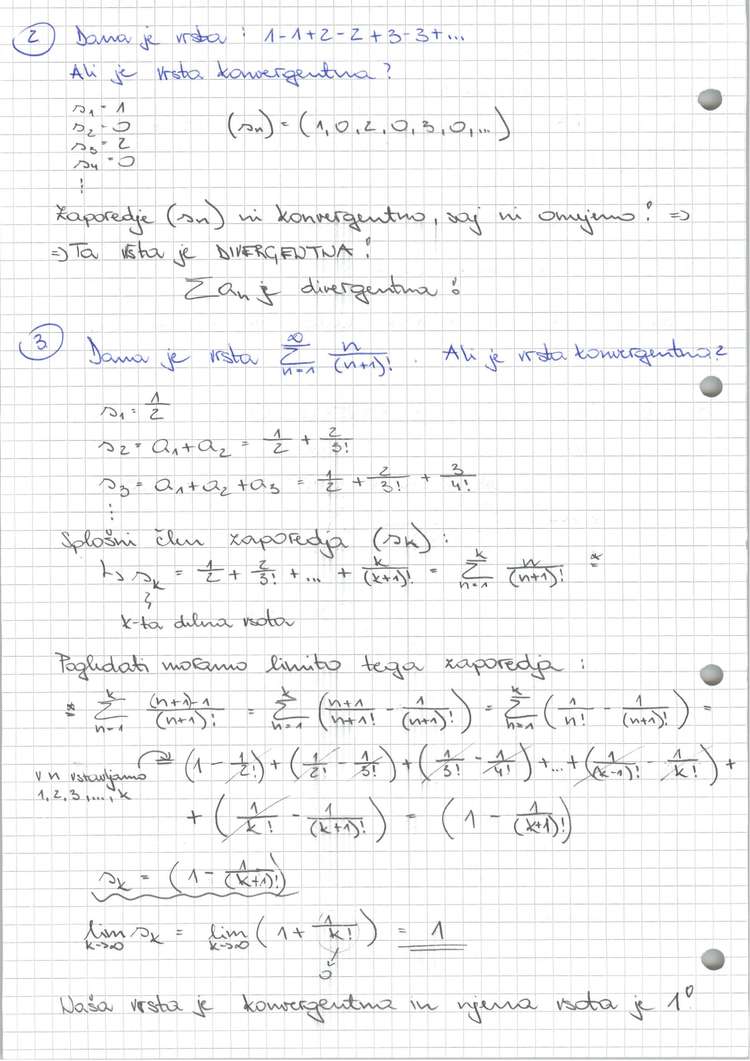 2 Dana je vrsta : 1-1+2-2+3-3+...
Ali je vrsta konvergentna?
s₁ = 1
s₂ = 0 (sₙ) = (1,0,2,0,3,0,...)
s₃ = 2
s₄ = 0
⋮
Zaporedje (sₙ) ni konvergentno, saj ni omejeno! =>
=> Ta vrsta je DIVERGENTNA!
∑aₙ je divergentna!
3 Dana je vrsta ∑_{n=1}^{∞} n/(n+1)! . Ali je vrsta konvergentna?
s₁ = 1/2
s₂ = a₁+a₂ = 1/2 + 2/3!
s₃ = a₁+a₂+a₃ = 1/2 + 2/3! + 3/4!
⋮
Splošni člen zaporedja (sₖ) :
↳ sₖ = 1/2 + 2/3! + ... + k/(k+1)! = ∑_{n=1}^{k} n/(n+1)! =*
k-ta delna vsota
Pogledati moramo limito tega zaporedja :
=* ∑_{n=1}^{k} ((n+1)-1)/(n+1)! = ∑_{n=1}^{k} ((n+1)/(n+1)! - 1/(n+1)!) = ∑_{n=1}^{k} (1/n! - 1/(n+1)!) =
v n vstavljamo = (1 - 1/2!) + (1/2! - 1/3!) + (1/3! - 1/4!) + ... + (1/(k-1)! - 1/k!) +
1, 2, 3, ..., k
+ (1/k! - 1/(k+1)!) = (1 - 1/(k+1)!)
sₖ = (1 - 1/(k+1)!)
lim_{k→∞} sₖ = lim_{k→∞} (1 + 1/k!) = 1
0
Naša vrsta je konvergentna in njena vsota je 1!